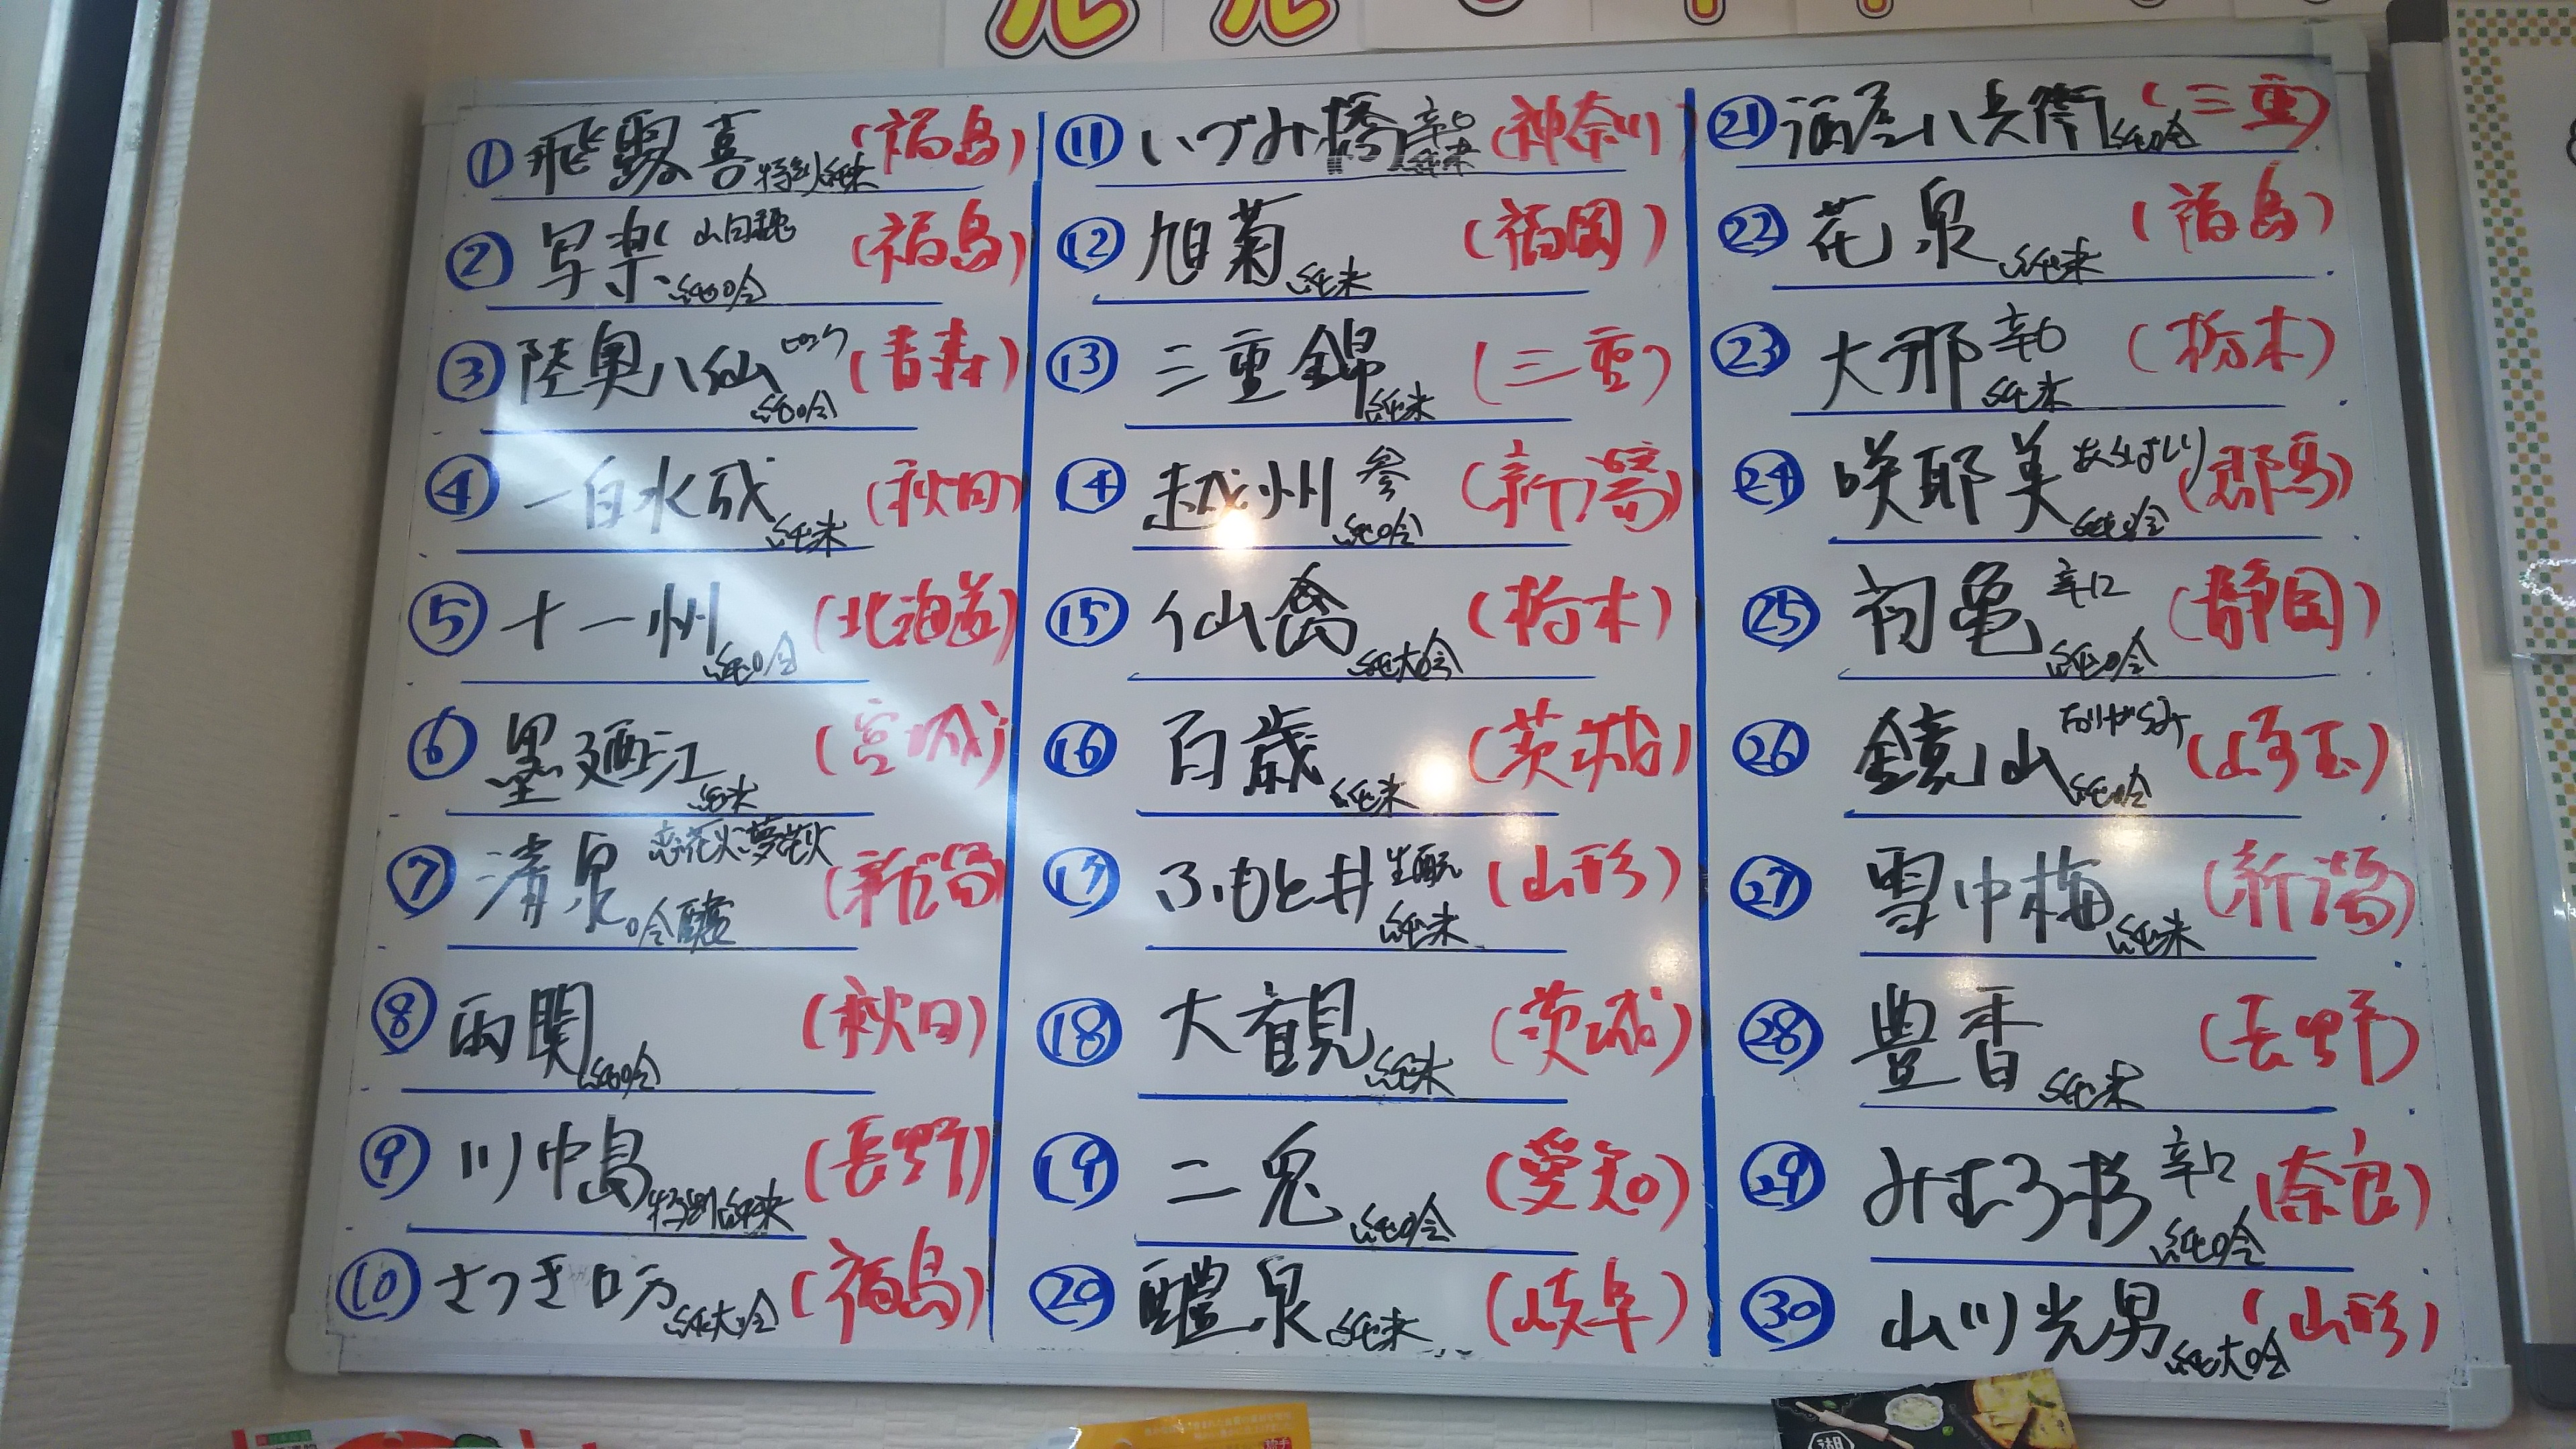 ① 飛露喜 特別純米 (福島)
② 写楽 純吟 (福島)
③ 陸奥八仙 純吟 (青森)
④ 一白水成 純米 (秋田)
⑤ 十一州 純吟 (北海道)
⑥ 墨廼江 純米 (宮城)
⑦ 清泉 恋花火夢花火 吟醸 (新潟)
⑧ 両関 純吟 (秋田)
⑨ 川中島 特別純米 (長野)
⑩ さつき 純大吟 (福島)
⑪ いづみ橋 辛口 純米 (神奈川)
⑫ 旭菊 純米 (福岡)
⑬ 三重錦 純米 (三重)
⑭ 越州 参 純吟 (新潟)
⑮ 仙禽 純大吟 (栃木)
⑯ 百歳 純米 (茨城)
⑰ ふもと井 生酛 純米 (山形)
⑱ 大観 純米 (茨城)
⑲ 二兎 純吟 (愛知)
⑳ 醴泉 純米 (岐阜)
㉑ 酒屋八兵衛 純吟 (三重)
㉒ 花泉 純米 (福島)
㉓ 大那 辛口 純米 (栃木)
㉔ 咲耶美 純吟 (群馬)
㉕ 初亀 辛口 純吟 (静岡)
㉖ 鏡山 純吟 (埼玉)
㉗ 雪中梅 純米 (新潟)
㉘ 豊香 純米 (長野)
㉙ みむろ杉 辛口 純吟 (奈良)
㉚ 山川光男 純大吟 (山形)